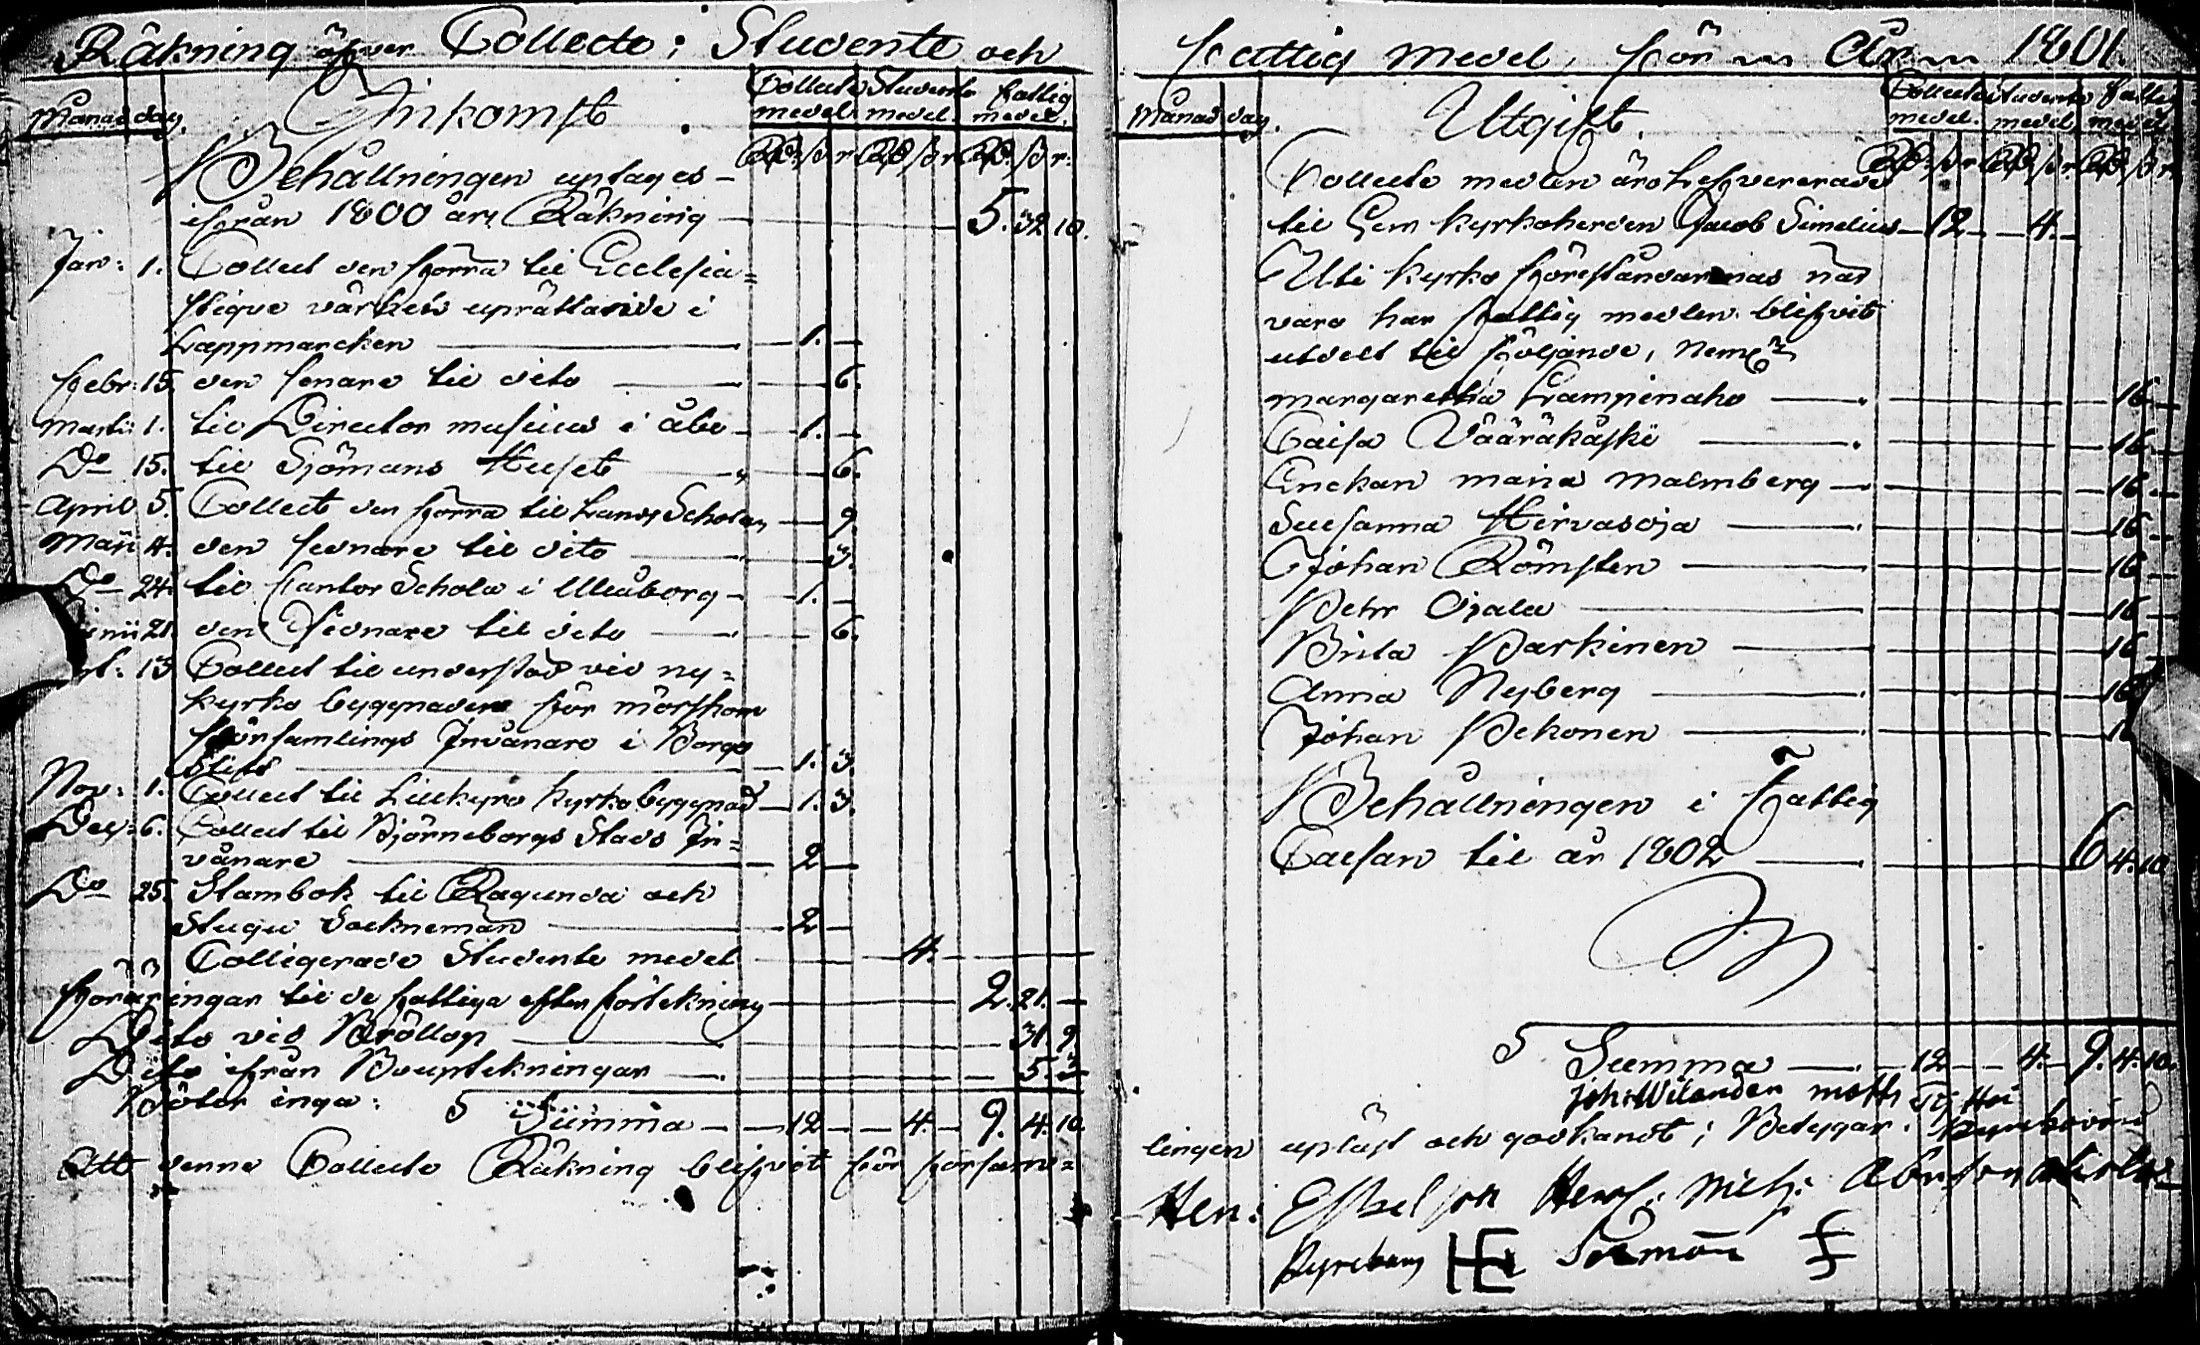 Räkning öfver Collecte; Studente och
Månad dag. Inkomst Collecte medel. Studente medel. Fattig medel.
Rd. ß r. Rd ß r Rd. ß r:
Behållningen uptages
ifrån 1800 års Räkning 5. 32 10.
Jan: 1. Collect den förra til Ecclesia=
stique värkets uprättande i
Lappmarcken 1. —
Febr: 15. den senare til dito 6.
Martii 1. til Director musices i Åbo 1. —
Do 15. til Sjömans Huset 6.
April 5. Collect den förra til Lands Scholan 9.
Maii 4. den sednare til dito 3.
Do 24. til Cantor Schola i Uleåborg 1. —
21. den sednare til dito 6.
13 Collect til understöd vid ny=
kyrko byggnaden för Mörskom
församlings Invånare i Borgo
Stift 1. 3.
Nov: 1. Collect til Lillkyro kyrko byggnad 1. 3.
Dec: 6. Collect til Björneborgs Stads In=
vånare 2 —
Do 25. Stambok til Ragunda och
Stugu Socknemän 2 —
Colligerade Studente medel 4. —
Föräringar til de fattiga efter förtekning 2. 21. —
Dito vid Bröllop 31. 9.
Dito ifrån Boupteckningar 5. 3
Böter inga:
Summa 12 — 4. — 9. 4. 10.
Att denne Collecte Räkning blifvit för försam=
Fattig Medel, för Åren 1801.
Månad dag. Utgift. Collecte medel. Studente medel. Fattig medel
Rd. ß r Rd. ß r. Rd. ß r
Collecte medlen äro lefvererade
til Herr Kyrkoherden Jacob Simelius 12 — 4. —
Uti Kyrko Föreståndarenas när
varo har fattig medlen blifvit
utdelt til följande, Neml:
Margaretha Lampinaho 16. —
Caisa Vääräkäski 16. —
Enckan Maria Malmberg 16 —
Susanna Hirvasoja 16 —
Johan Römsten 16 —
Petter Ojala 16 —
Brita Parkinen 16 —
Anna Nyberg 16
Johan Pekonen
Behållningen i Fattig
Cassan til år 1802 6 4. 10
Summa 12 — 4. — 9. 4. 10.
Joh: Wilander
lingen upläst och godkändt; Betygar.
Hen:
HE